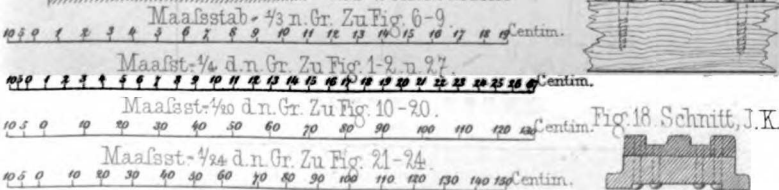 Maaſsstab - 1/3 n. Gr. Zu Fig. 6-9.
10 5 0 1 2 3 4 5 6 7 8 9 10 11 12 13 14 15 16 17 18 19 Centim.
Maaſsst. - 1/4 d. n. Gr. Zu Fig. 1-2. u. 27.
10 5 0 1 2 3 4 5 6 7 8 9 10 11 12 13 14 15 16 17 18 19 20 21 22 23 24 25 26 27 Centim.
Maaſsst. - 1/20 d. n. Gr. Zu Fig. 10-20.
10 5 0 10 20 30 40 50 60 70 80 90 100 110 120 130 Centim.
Fig. 18. Schnitt, J.K.
Maaſsst. - 1/24 d. n. Gr. Zu Fig. 21-24.
10 5 0 10 20 30 40 50 60 70 80 90 100 110 120 130 140 150 Centim.